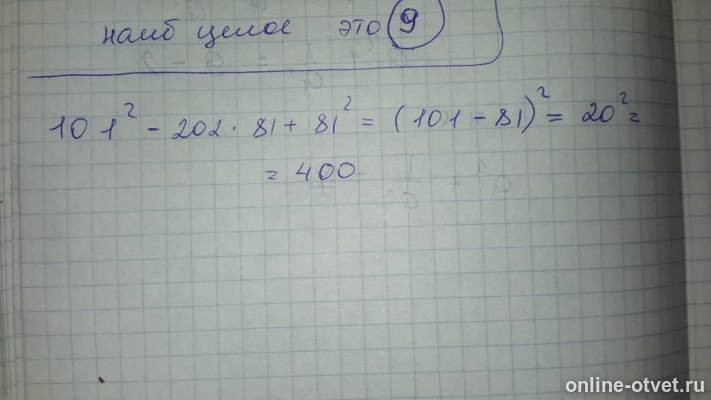 наиб целое это 9
101² - 202 · 81 + 81² = (101 - 81)² = 20² =
= 400
online-otvet.ru